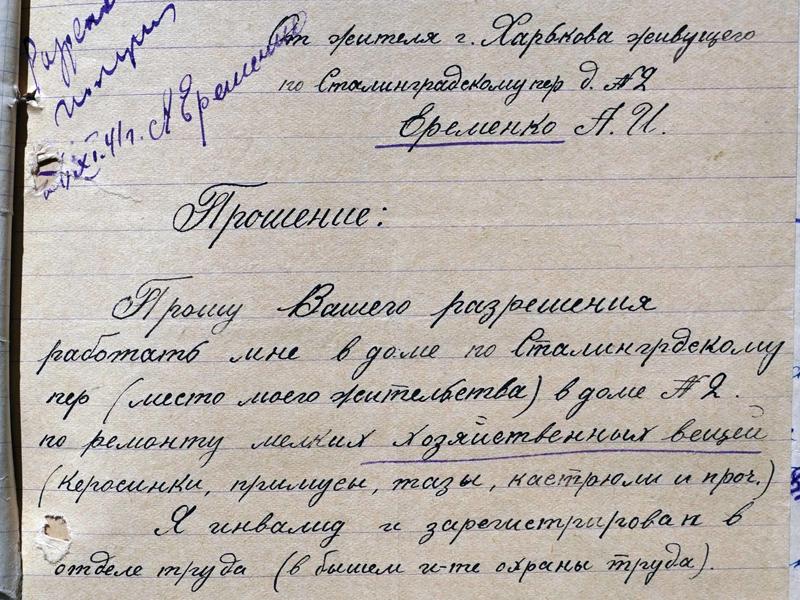 От жителя г. Харькова живущего
по Сталинградскому пер д. №2
Еременко А. И.
XI.41г. А Еременко
Прошение:
Прошу Вашего разрешения
работать мне в доме по Сталингрдскому
пер (место моего жительства) в доме №2.
по ремонту мелких хозяйственных вещей
(Керосинки, примусы, тазы, кастрюли и проч.)
Я инвалид и зарегистрирован в
отделе труда (в бышем и-те охраны труда).